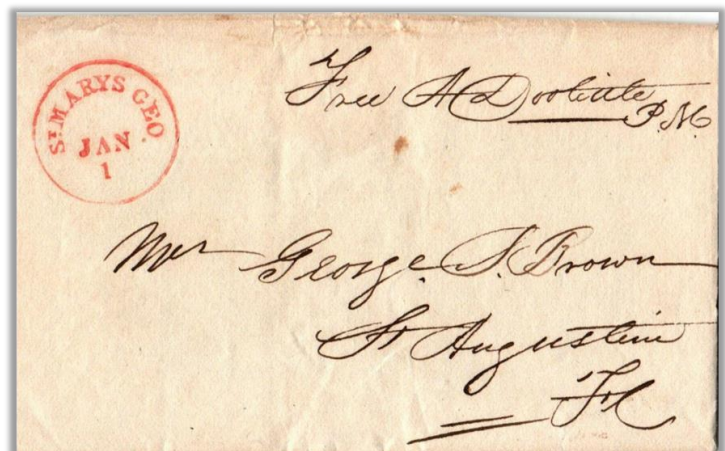 ST. MARYS GEO.
JAN
1
Free A Doolittle
P.M.
Mr George S. Brown
St Augustine
Fl